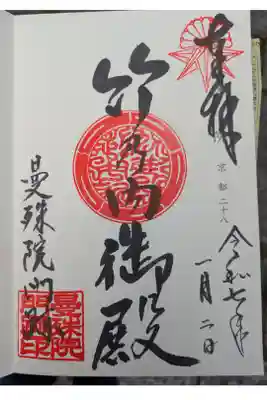 奉拝
京都二十八
令和七年
一月二日
竹乃内御殿
曼殊院門跡